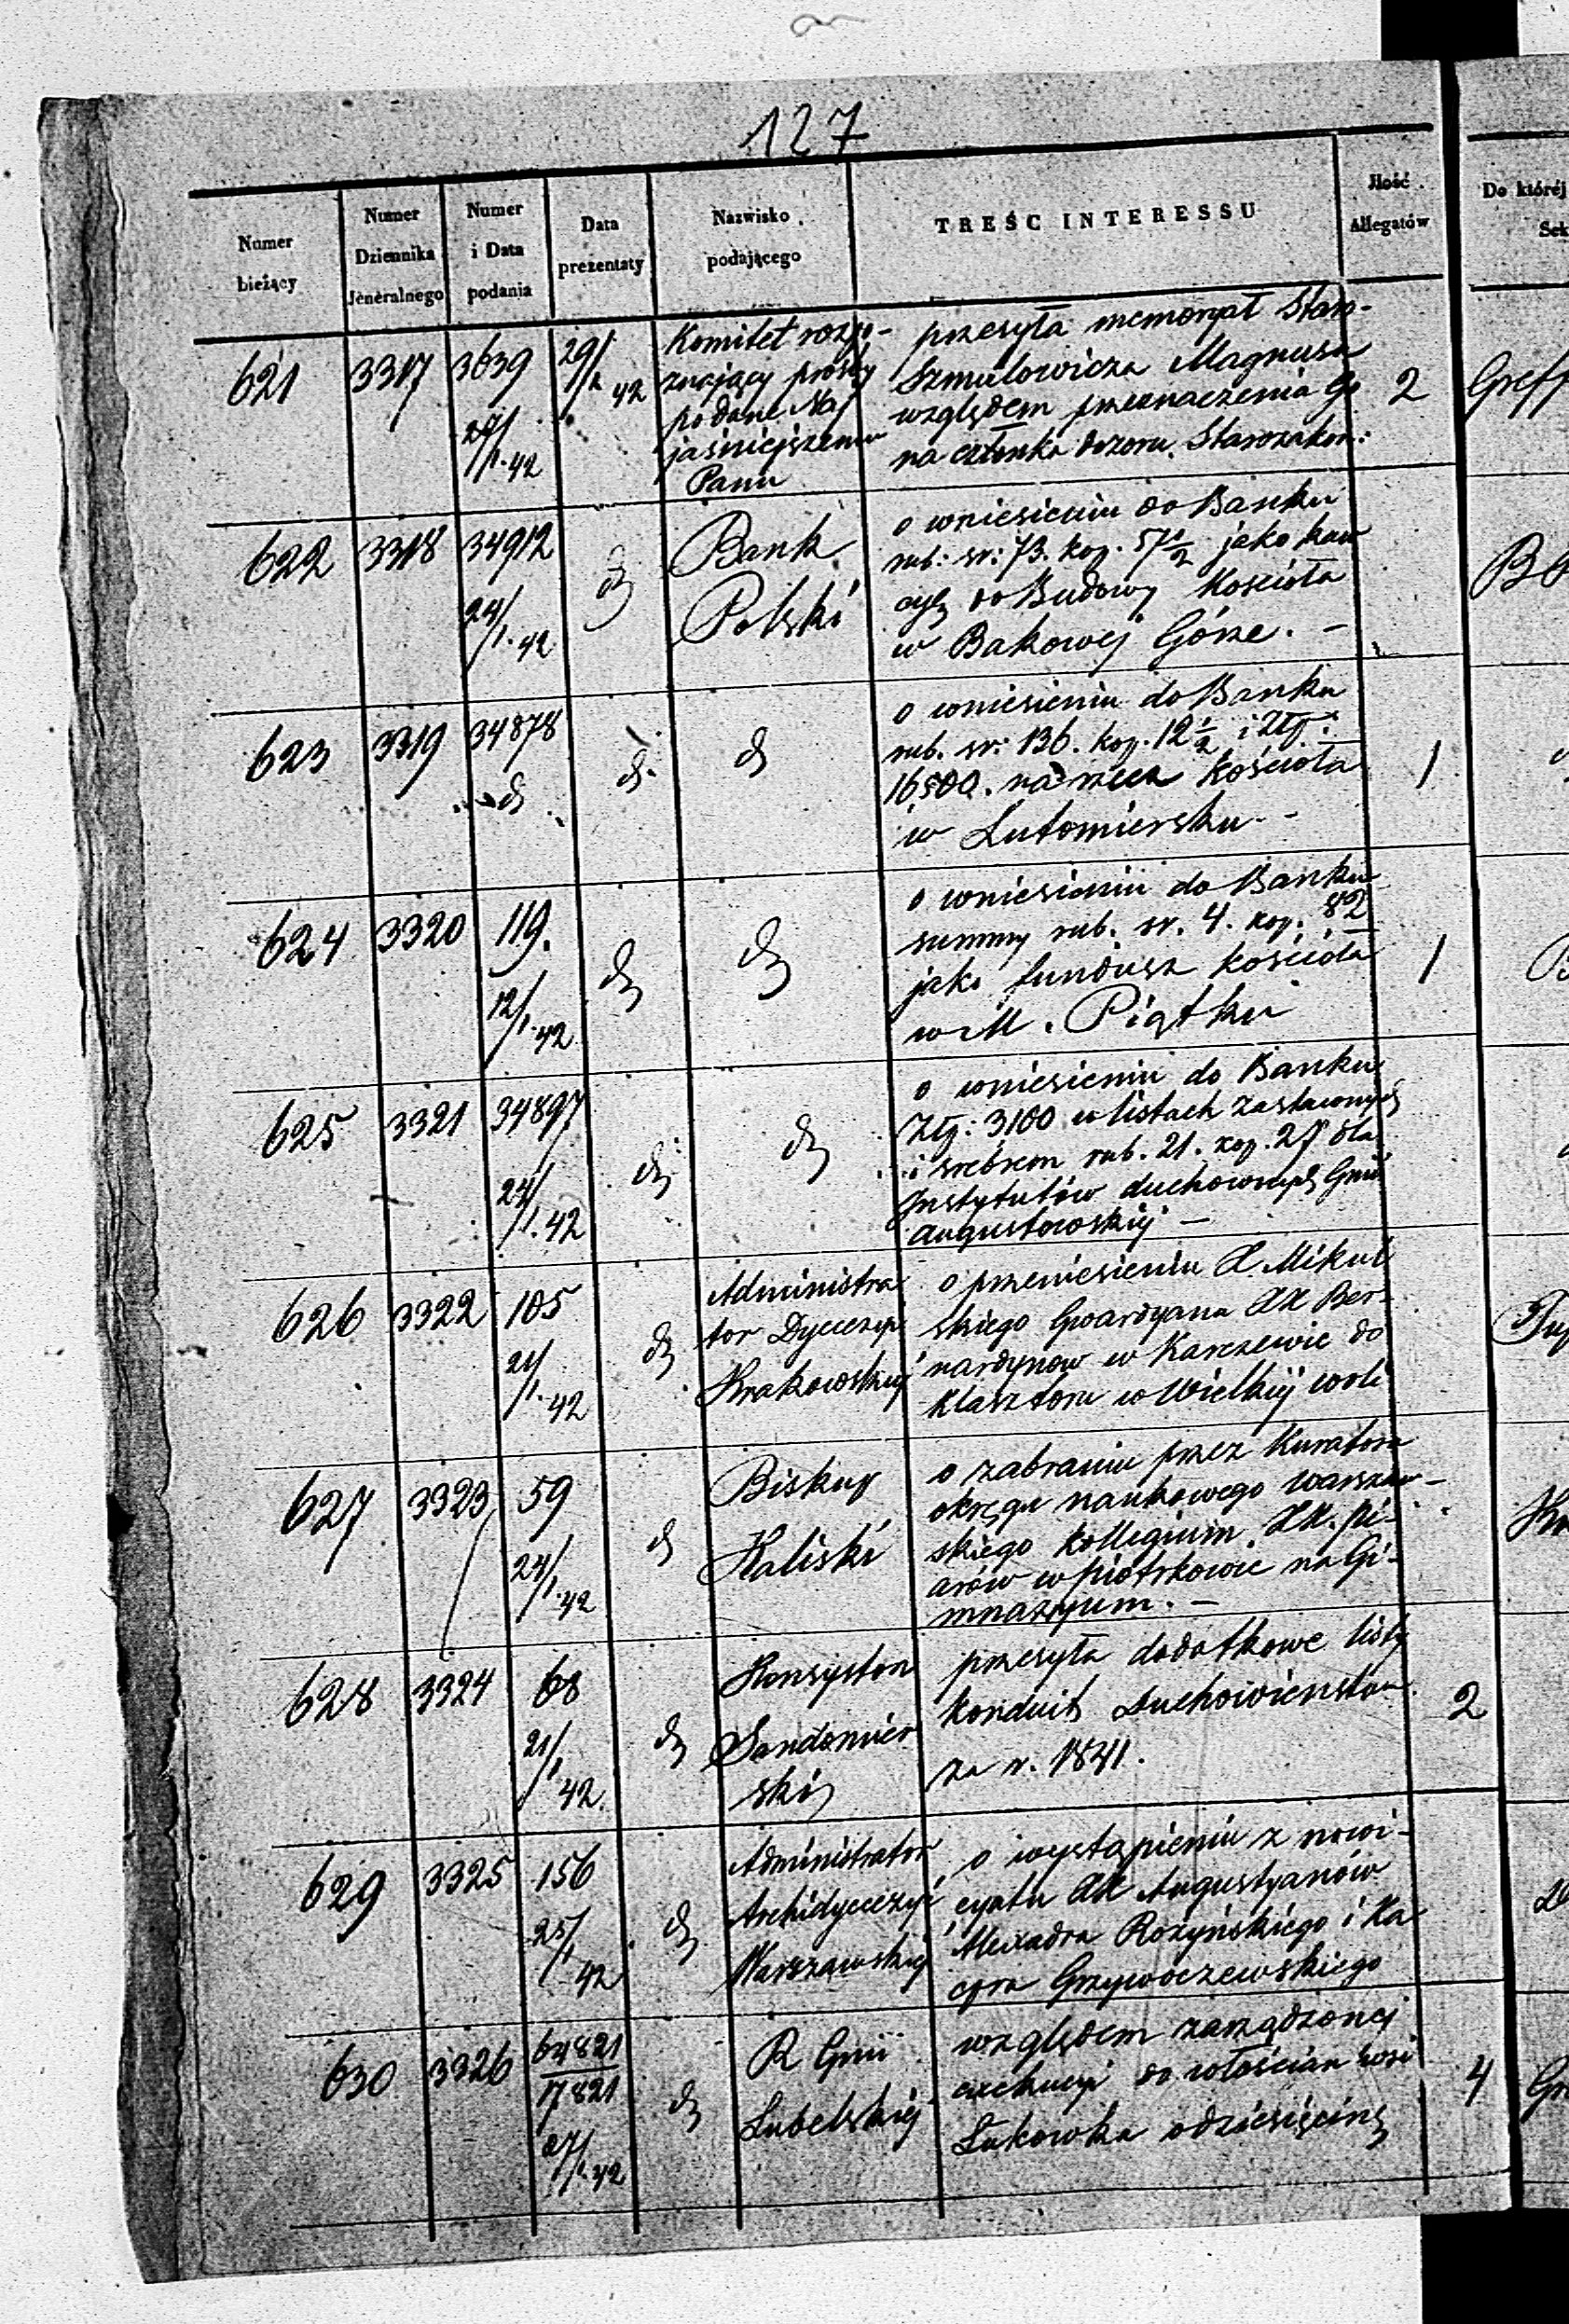 127
Numer bieżący
Numer Dziennika Jeneralnego
Numer i Data podania
Data prezentaty
Nazwisko podającego
TREŚC INTERESSU
Jlość Allegatów
Do któréj
Sek
621 3317 3639 27/1.42 29/1 42
Komitet rozpo-
znający prośby
podane Naj
jaśniejszemu
Panu
przesyła memoryał Staro-
Szmulowicza Magnusa
względem przeznaczenia go
na członka dozoru Starozakon:
2
Greff
622 3318 34912 24/1.42 d
Bank
Polski
o wniesieniu do Banku
rub: sr: 73. kop. 57 1/2 jako kau
cyę do Budowy Kościoła
w Bakowej Górze. –
623 3319 34878 d d d
o wniesieniu do Banku
rub. sr: 136. kop. 12 1/2 i Złp:
16500. na rzecz Kościoła
w Lutomiersku -
1
624 3320 119. 12/1.42 d d
o wniesieniu do Banku
summy rub. sr. 4. kop. 82
jako fundusz kościoła
w M. Piątku
1
625 3321 34897 24/1.42 d d
o wniesieniu do Banku
Złp: 3100 w listach zastawnych
i srebrem rub. 21. kop. 27 dla
Instytutów duchownych Gnii
Augustowskiej –
626 3322 105 21/1.42 d
Administra
tor Dyecezyi
Krakowskiej
o przeniesieniu X. Mikul
skiego Gwardyana XX Ber-
nardynow w Karczewie do
klasztoru w Wielkiej woli
627 3323 59 24/1.42 d
Biskup
Kaliski
o zabraniu przez Kuratora
okręgu naukowego warszaw-
skiego kollegium XX. pi-
arów w piotrkowie na Gi-
mnazyum. –
628 3324 68 21/1 42. d
Konsystorz
Sandomier
ski
przesyła dodatkowe listy
konduit Duchowieństwa
za r. 1841.
2
629 3325 156 25/1 42 d
Administrator
Archidyecezyi
Warszawskiej
o wystąpieniu z nowi-
cyatu XX Augustyanów
Alexadra Rożyńskiego i Ka
cpra Grzywaczewskiego
630 3326 64821/17821 27/1.42 d
R Gnii
Lubelskiej
względem zarządzonej
exekucyi do włościan wsi
Łukowka o dziesięcinę
4